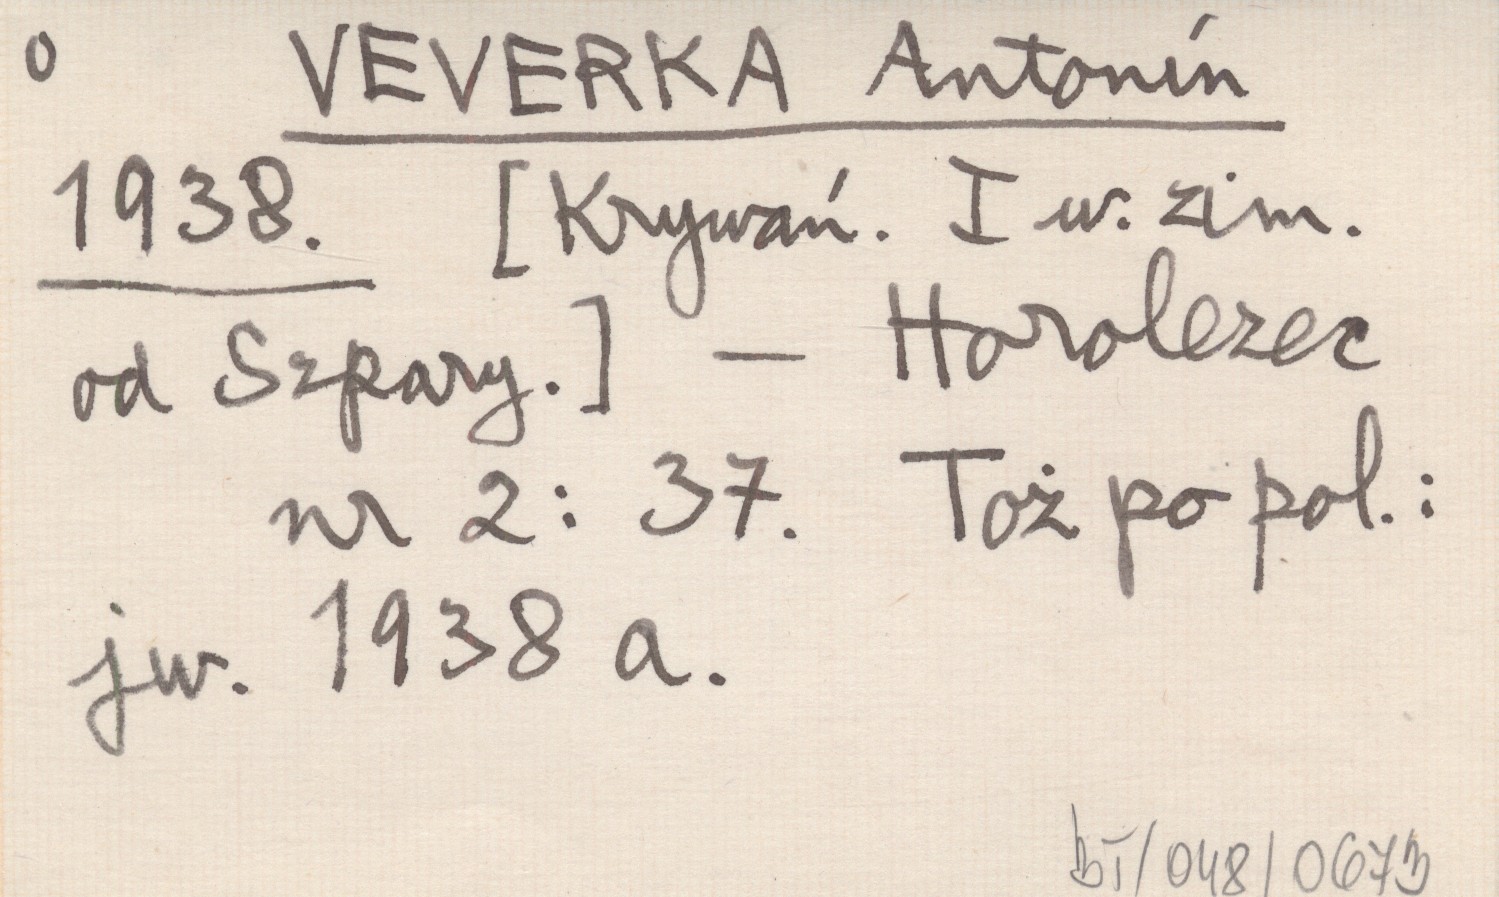 0 VEVERKA Antonín
1938. [Krywań. I w. zim.
od Szpary.] — Horolezec
nr 2: 37. Toż po pol.:
jw. 1938 a.
BT/048/0673